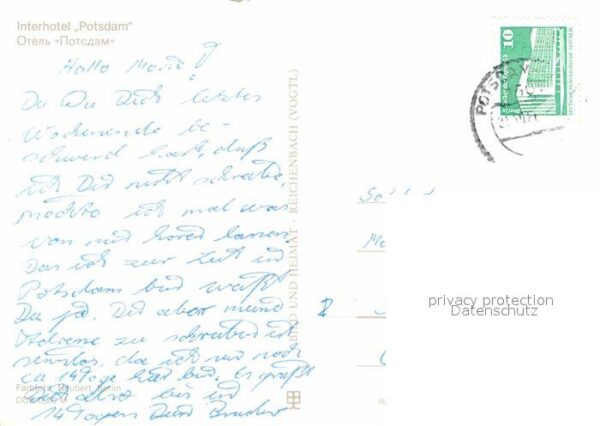 Interhotel „Potsdam“
Отель «Потсдам»
Hallo Mario!
Da Du Dich letztes
Wochenende be-
schwerd hast, daß
ich Dir nicht schreibe,
möchte ich mal was
von mir hören lassen.
Das ich zur Zeit in
Potsdam bin weißt
Du ja. Dir aber meine
Adresse zu schreiben ist
sinnlos, da ich nur noch
ca 14 Tage hier bin. Es grüßt
Dich also bis in
14 Tagen Dein Bruder
BILD UND HEIMAT · REICHENBACH (VOGTL)
Berlin
10
DEUTSCHE DEMOKRATISCHE REPUBLIK
POTSDAM
privacy protection
Datenschutz